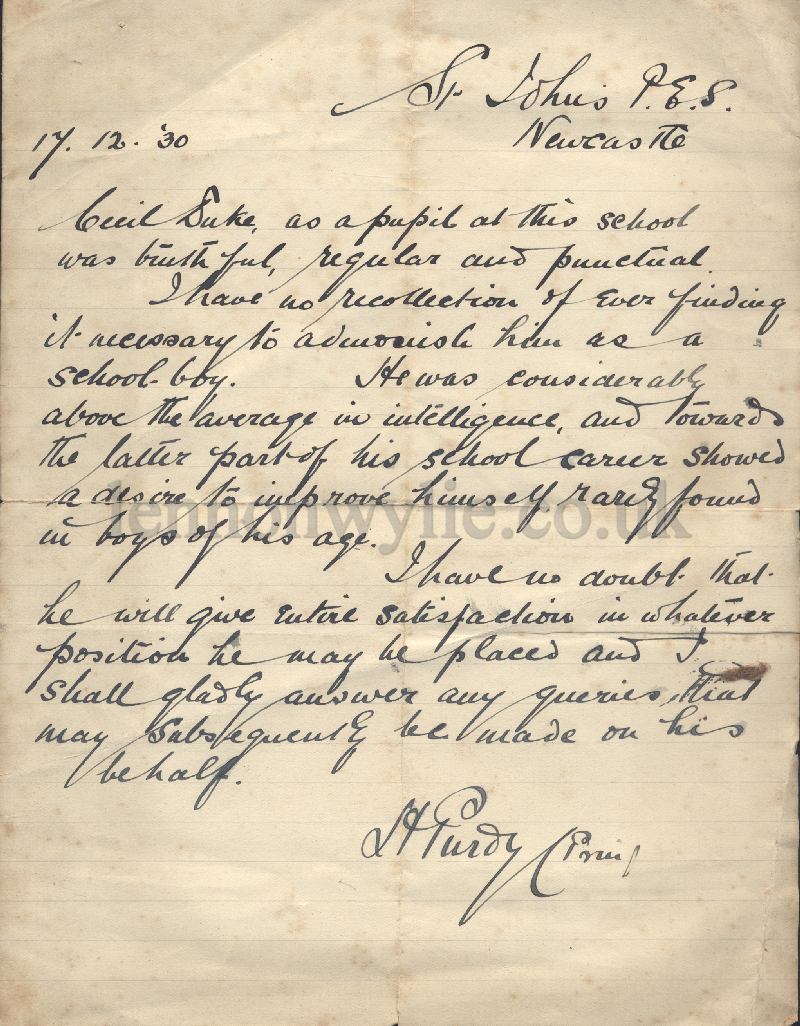 St Johns P.E.S.
Newcastle
17. 12. '30
Cecil Duke, as a pupil at this school
was truthful, regular and punctual.
I have no recollection of ever finding
it necessary to admonish him as a
school-boy. He was considerably
above the average in intelligence, and towards
the latter part of his school career showed
a desire to improve himself rarely found
in boys of his age.
lennonwylie.co.uk
I have no doubt that
he will give entire satisfaction in whatever
position he may be placed and I
shall gladly answer any queries that
may subsequently be made on his
behalf.
H Purdy (Prin)